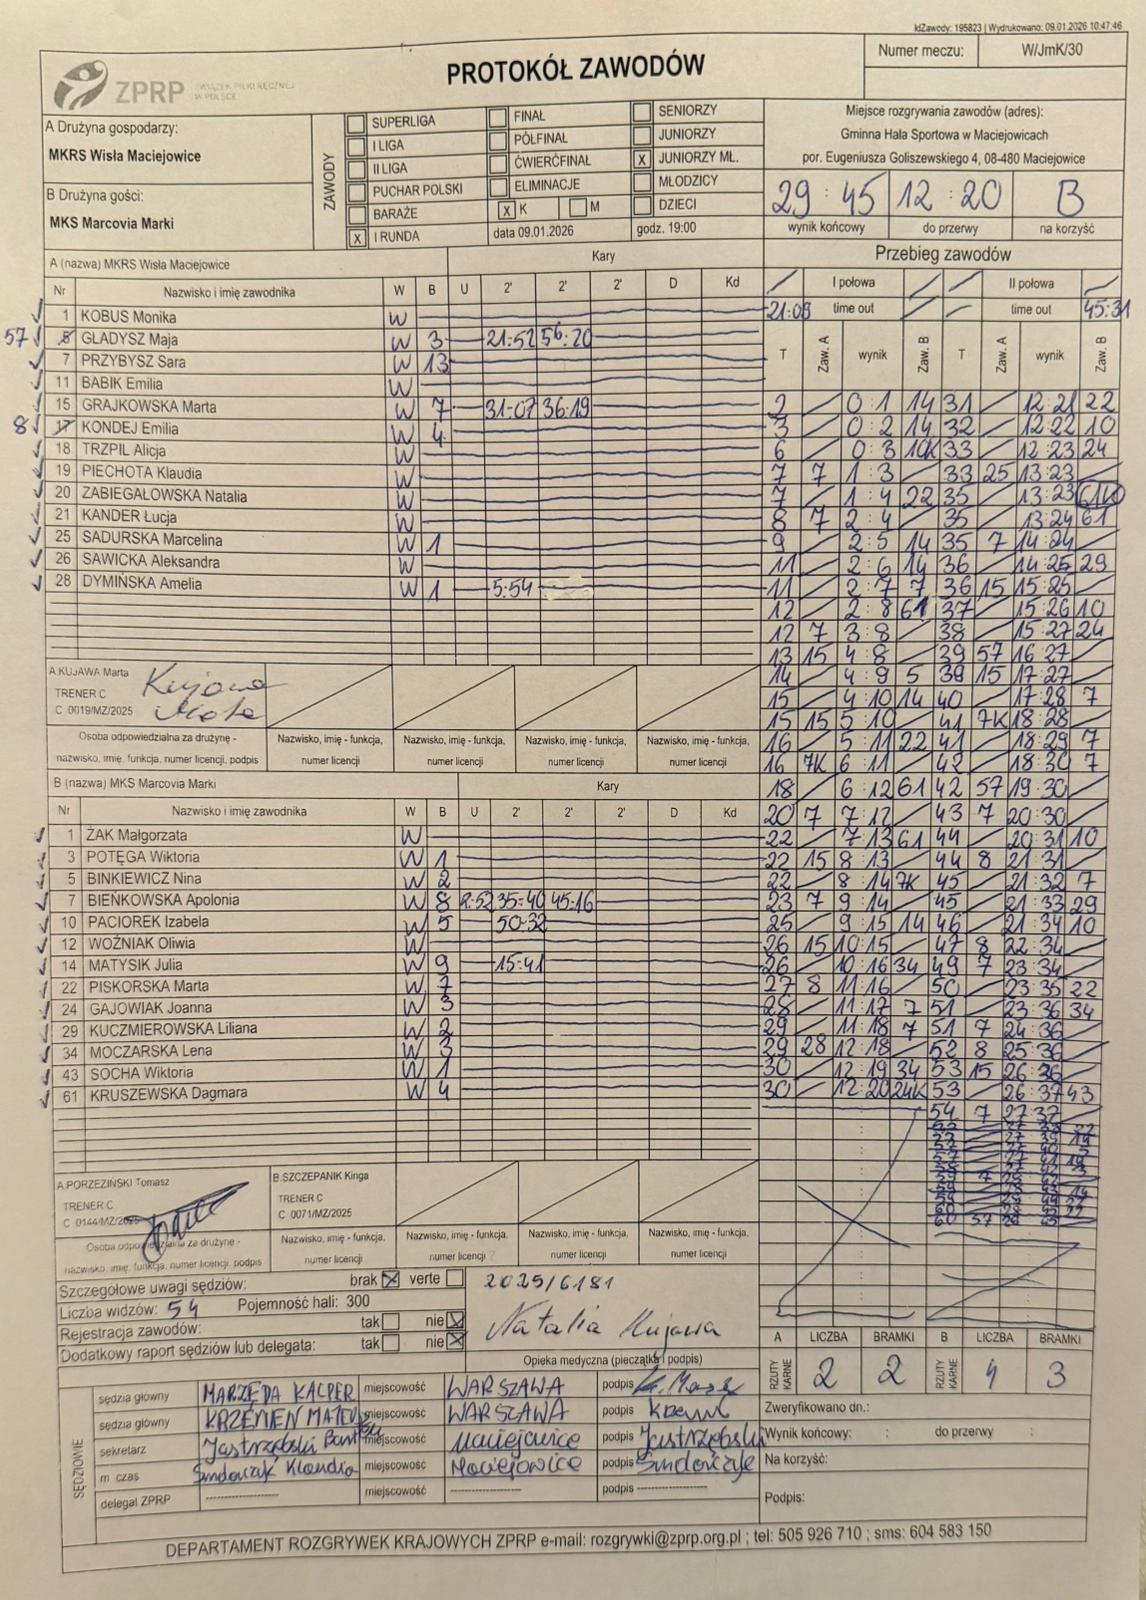 IdZawody: 195823 | Wydrukowano: 09.01.2026 10:47:46
Numer meczu: W/JmK/30
ZPRP ZWIĄZEK PIŁKI RĘCZNEJ W POLSCE
PROTOKÓŁ ZAWODÓW
A Drużyna gospodarzy:
MKRS Wisła Maciejowice
B Drużyna gości:
MKS Marcovia Marki
ZAWODY
SUPERLIGA
I LIGA
II LIGA
PUCHAR POLSKI
BARAŻE
X I RUNDA
FINAŁ
PÓŁFINAŁ
ĆWIERĆFINAŁ
ELIMINACJE
X K M
data 09.01.2026
SENIORZY
JUNIORZY
X JUNIORZY MŁ.
MŁODZICY
DZIECI
godz. 19:00
Miejsce rozgrywania zawodów (adres):
Gminna Hala Sportowa w Maciejowicach
por. Eugeniusza Goliszewskiego 4, 08-480 Maciejowice
29 : 45 12 : 20 B
wynik końcowy do przerwy na korzyść
A (nazwa) MKRS Wisła Maciejowice Kary
Nr Nazwisko i imię zawodnika W B U 2' 2' 2' D Kd
1 KOBUS Monika W
57 GŁADYSZ Maja W 3 21:52 56:20
7 PRZYBYSZ Sara W 13
11 BABIK Emilia W
15 GRAJKOWSKA Marta W 7 31:07 36:19
8 17 KONDEJ Emilia W 4
18 TRZPIL Alicja W
19 PIECHOTA Klaudia W
20 ZABIEGAŁOWSKA Natalia W
21 KANDER Łucja W
25 SADURSKA Marcelina W 1
26 SAWICKA Aleksandra W
28 DYMIŃSKA Amelia W 1 5:54
A.KUJAWA Marta
TRENER C
C 0019/MZ/2025
Kujawa
Marta
Osoba odpowiedzialna za drużynę - nazwisko, imię, funkcja, numer licencji, podpis
Nazwisko, imię - funkcja, numer licencji
Nazwisko, imię - funkcja, numer licencji
Nazwisko, imię - funkcja, numer licencji
Nazwisko, imię - funkcja, numer licencji
B (nazwa) MKS Marcovia Marki Kary
Nr Nazwisko i imię zawodnika W B U 2' 2' 2' D Kd
1 ŻAK Małgorzata W
3 POTĘGA Wiktoria W 1
5 BINKIEWICZ Nina W 2
7 BIEŃKOWSKA Apolonia W 8 35:40 45:16
10 PACIOREK Izabela W 5 50:32
12 WOŹNIAK Oliwia W
14 MATYSIK Julia W 9 15:41
22 PISKORSKA Marta W 7
24 GAJOWIAK Joanna W 3
29 KUCZMIEROWSKA Liliana W 2
34 MOCZARSKA Lena W 3
43 SOCHA Wiktoria W 1
61 KRUSZEWSKA Dagmara W 4
A.PORZEZIŃSKI Tomasz
TRENER C
C 0144/MZ/2025
B.SZCZEPANIK Kinga
TRENER C
C 0071/MZ/2025
Osoba odpowiedzialna za drużynę - nazwisko, imię, funkcja, numer licencji, podpis
Nazwisko, imię - funkcja, numer licencji
Nazwisko, imię - funkcja, numer licencji
Nazwisko, imię - funkcja, numer licencji
Nazwisko, imię - funkcja, numer licencji
Przebieg zawodów
I połowa II połowa
21:09 time out time out 45:31
T Zaw. A wynik Zaw. B T Zaw. A wynik Zaw. B
2 0:1 14 31 12:21 22
3 0:2 14 32 12:22 10
6 0:3 10K 33 12:23 24
7 7 1:3 33 25 13:23
7 1:4 22 35 13:23 61K
8 7 2:4 35 13:24 61
9 2:5 14 35 7 14:24
11 2:6 14 36 14:25 29
11 2:7 7 36 15 15:25
12 2:8 61 37 15:26 10
12 7 3:8 38 15:27 24
13 15 4:8 39 57 16:27
14 4:9 5 39 15 17:27
15 4:10 14 40 17:28 7
15 15 5:10 41 7K 18:28
16 5:11 22 41 18:29 7
16 7K 6:11 42 18:30 7
18 6:12 61 42 57 19:30
20 7 7:12 43 7 20:30
22 7:13 61 44 20:31 10
22 15 8:13 44 8 21:31
22 8:14 7K 45 21:32 7
23 7 9:14 45 21:33 29
25 9:15 14 46 21:34 10
26 15 10:15 47 8 22:34
26 10:16 34 49 7 23:34
27 8 11:16 50 23:35 22
28 11:17 7 51 23:36 34
29 11:18 7 51 7 24:36
29 28 12:18 52 8 25:36
30 12:19 34 53 15 26:36
30 12:20 24K 53 26:37 43
54 7 27:37
Szczegółowe uwagi sędziów: brak X verte
Liczba widzów: 54 Pojemność hali: 300
Rejestracja zawodów: tak nie X
Dodatkowy raport sędziów lub delegata: tak nie X
2025/6181
Natalia Kujawa
Opieka medyczna (pieczątka i podpis)
A LICZBA BRAMKI B LICZBA BRAMKI
RZUTY KARNE 2 2 RZUTY KARNE 4 3
SĘDZIOWIE
sędzia główny MARZĘDA KACPER miejscowość WARSZAWA podpis
sędzia główny KRZEMIEŃ miejscowość WARSZAWA podpis
sekretarz Jastrzębski miejscowość Maciejowice podpis Jastrzębski
m czas Klaudia miejscowość Maciejowice podpis
delegat ZPRP ---------- miejscowość ---------- podpis ----------
Zweryfikowano dn.:
Wynik końcowy: : do przerwy :
Na korzyść:
Podpis:
DEPARTAMENT ROZGRYWEK KRAJOWYCH ZPRP e-mail: rozgrywki@zprp.org.pl ; tel: 505 926 710 ; sms: 604 583 150